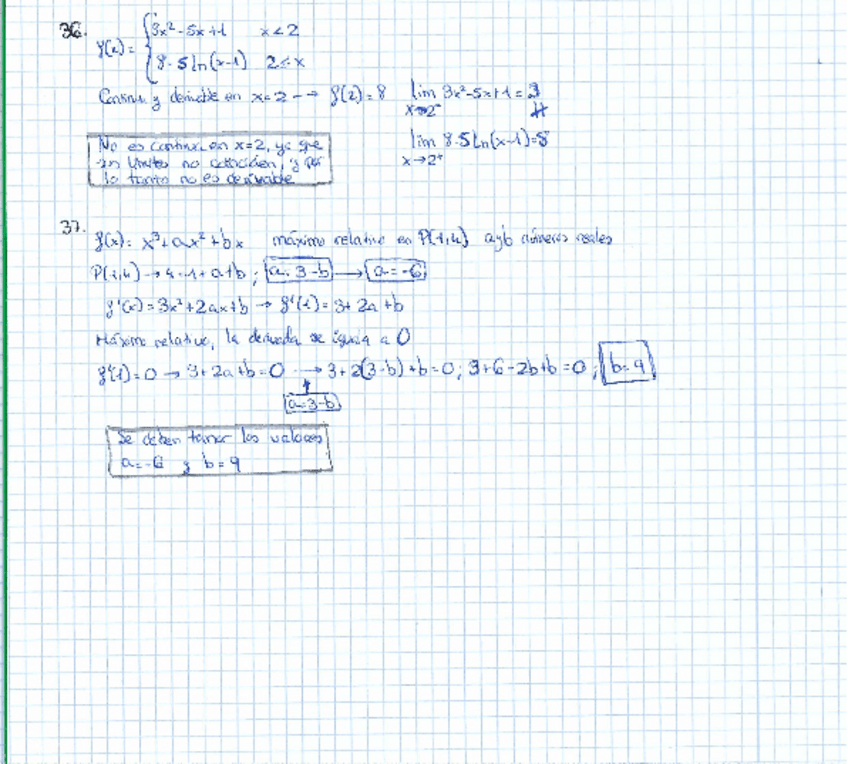 36. f(x) = { 3x² - 5x + 1   x < 2
8 - 5 ln(x-1)   2 ≤ x
Continua y derivable en x = 2 → f(2) = 8   lim 3x² - 5x + 1 = 3
x→2⁻
lim 8-5 Ln(x-1) = 8
x→2⁺
No es continua en x=2, ya que
sus límites no coinciden, y por
lo tanto no es derivable
37.
f(x) = x³ + ax² + bx   máximo relativo en P(1,4)   a y b números reales
P(1,4) → 4 = 1 + a + b ; a = 3 - b → a = -6
f'(x) = 3x² + 2ax + b → f'(1) = 3 + 2a + b
Máximo relativo, la derivada se iguala a 0
f'(1) = 0 → 3 + 2a + b = 0 → 3 + 2(3-b) + b = 0 ; 3 + 6 - 2b + b = 0 ; b = 9
a = 3 - b
Se deben tomar los valores
a = -6 y b = 9